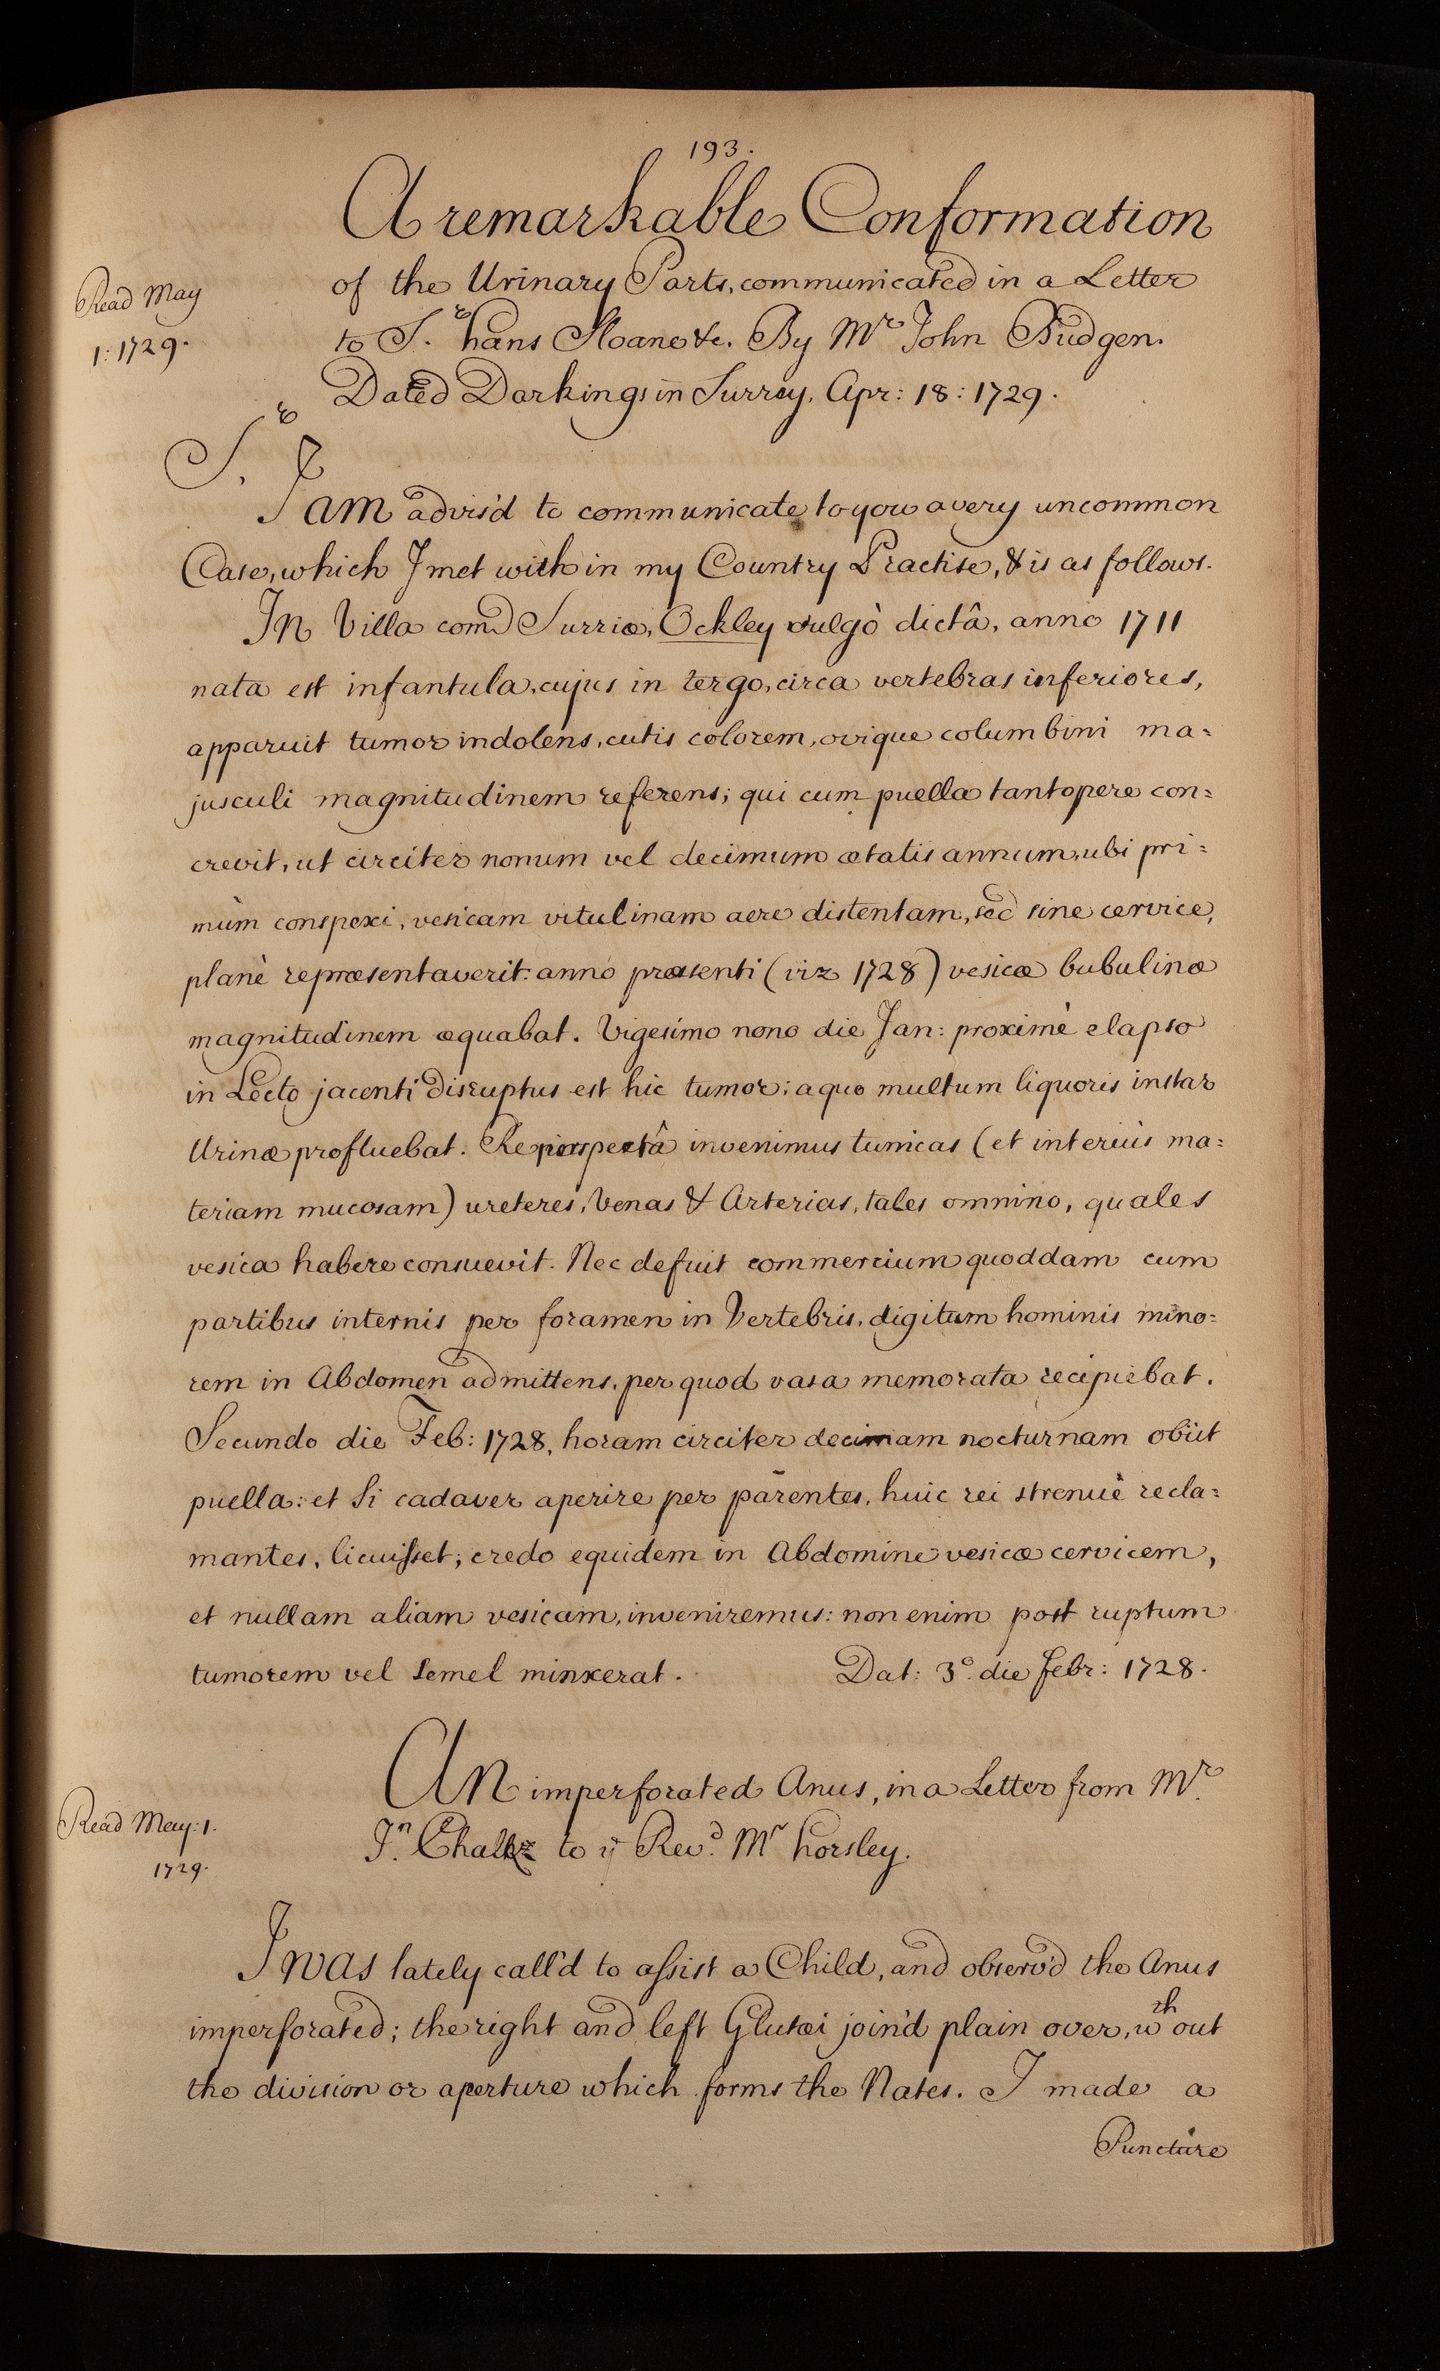 193.
A remarkable Conformation
of the Urinary Parts, communicated in a Letter
Read May
1: 1729.
to Sr. hans Sloane &c. By Mr John Budgen.
Dated Darking in Surrey, Apr: 18: 1729.
Sr.
I am advis'd to communicate to you a very uncommon
Case, which I met with in my Country Practise, & is as follows.
In Villa com Surriæ, Ockley vulgò dictâ, anno 1711
nata est infantula, cujus in tergo, circa vertebras inferiores,
apparuit tumor indolens, cutis colorem, ovique columbini ma=
jusculi magnitudinem referens; qui cum puella tantopere con=
crevit, ut circiter nonum vel decimum ætatis annum, ubi pri=
mùm conspexi, vesicam vitulinam aere distentam, sed sine cervice,
planè repræsentaverit: anno præsenti (viz 1728) vesicæ bubulinæ
magnitudinem æquabat. Vigesimo nono die Jan: proximè elapso
in Lecto jacenti disruptus est hic tumor; a quo multum liquoris instar
Urinæ profluebat. Re perspectâ invenimus tunicas (et interiùs ma=
teriam mucosam) ureteres, Venas & Arterias, tales omnino, quales
vesica habere consuevit. Nec defuit commercium quoddam cum
partibus internis per foramen in Vertebris, digitum hominis mino=
rem in Abdomen admittens, per quod vasa memorata recipiebat.
Secundo die Feb: 1728, horam circiter decimam nocturnam obiit
puella: et Si cadaver aperire per parentes, huic rei strenuè recla=
mantes, licuisset; credo equidem in Abdomine vesicæ cervicem,
et nullam aliam vesicam, inveniremus: non enim post ruptum
tumorem vel semel minxerat. Dat: 3o. die febr: 1728.
An imperforated Anus, in a Letter from Mr.
Read May: 1.
1729.
Jn. to ye Revd. Mr horsley.
I was lately call'd to assist a Child, and observ'd the Anus
imperforated; the right and left Glutæi join'd plain over, wth out
the division or aperture which forms the Nates. I made a
Puncture